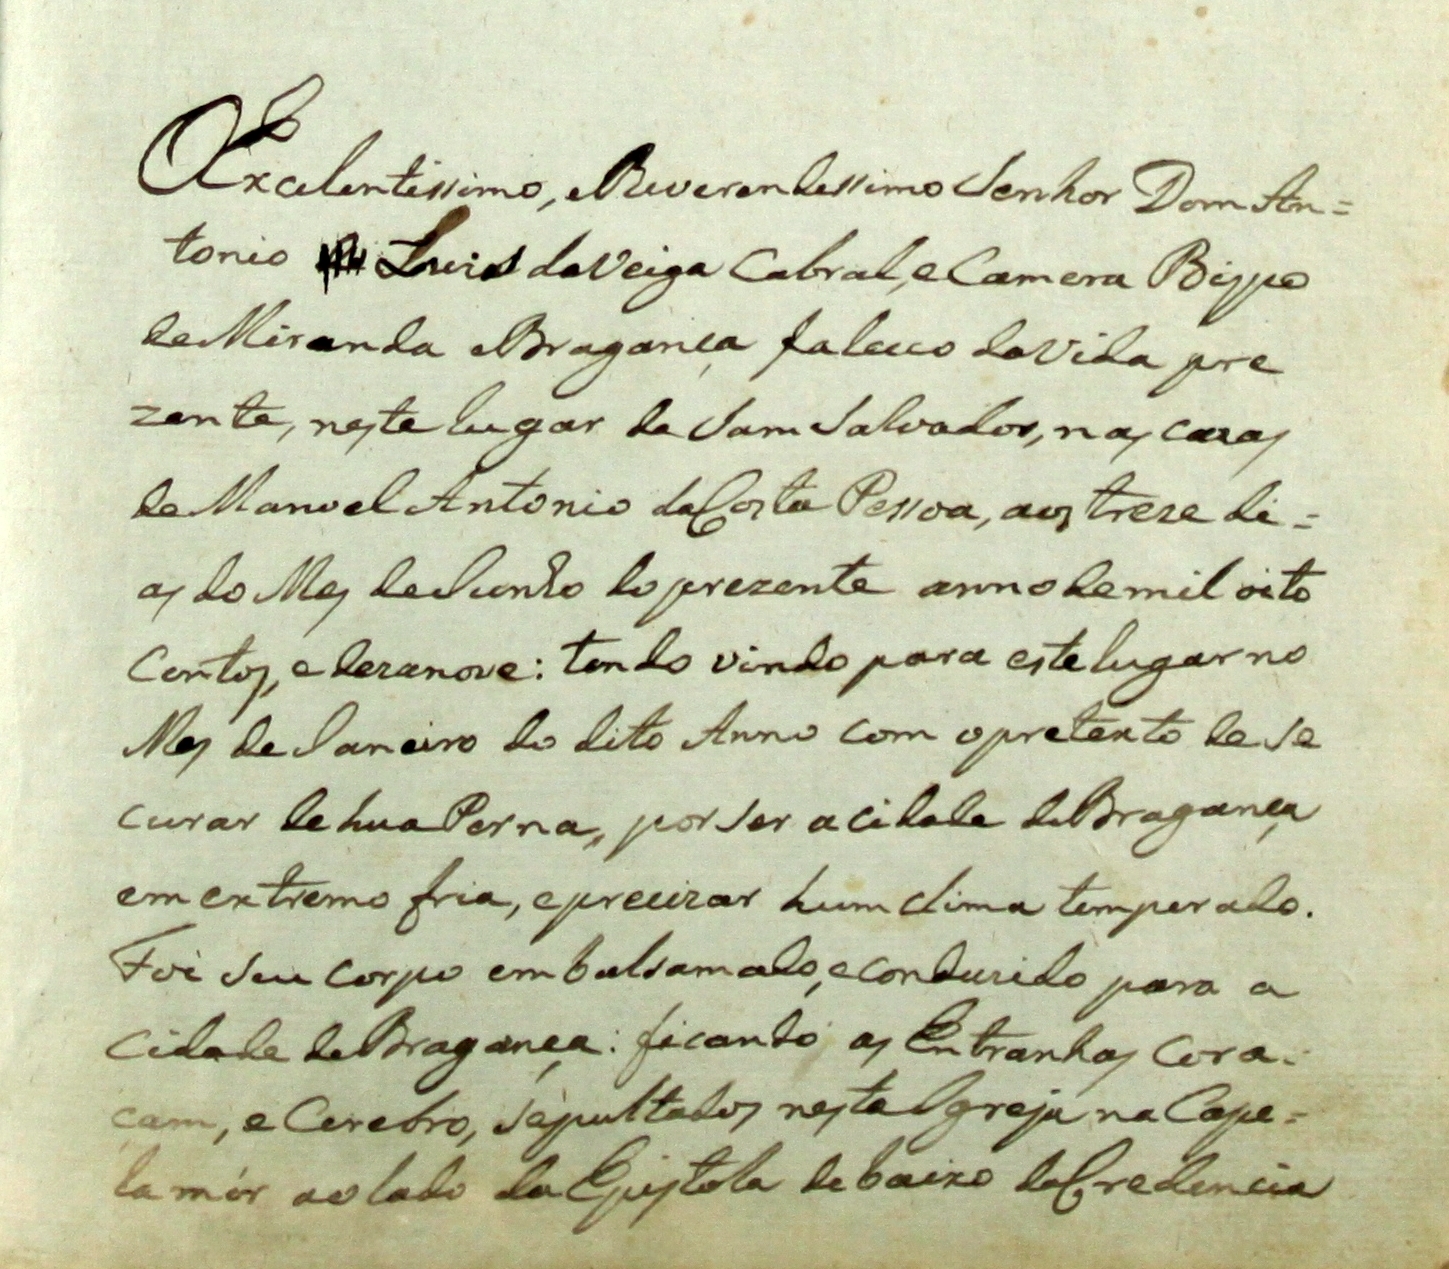 O Excelentissimo, e Reverendessimo Senhor Dom An=
tonio Luis da Veiga Cabral, e Camera Bispo
de Miranda e Bragança faleceo da Vida pre
zente, neste lugar de Sam Salvador, nas cazas
de Manoel Antonio da Costa Pessoa, aos treze di=
as do Mes de Junho do prezente anno de mil oito
Centos, e dezanove: tendo vindo para este lugar no
Mes de Janeiro do dito Anno com o pretexto de se
curar de hua Perna,, por ser a cidade de Bragança
em extremo fria, e precizar hum clima temperado.
Foi seu corpo embalsamado, e conduzido para a
Cidade de Bragança: ficando as Entranhas Cora=
çam, e Cerebro, sepultados nesta Igreja na Cape=
la mór ao lado da Epistola debaixo da Credencia